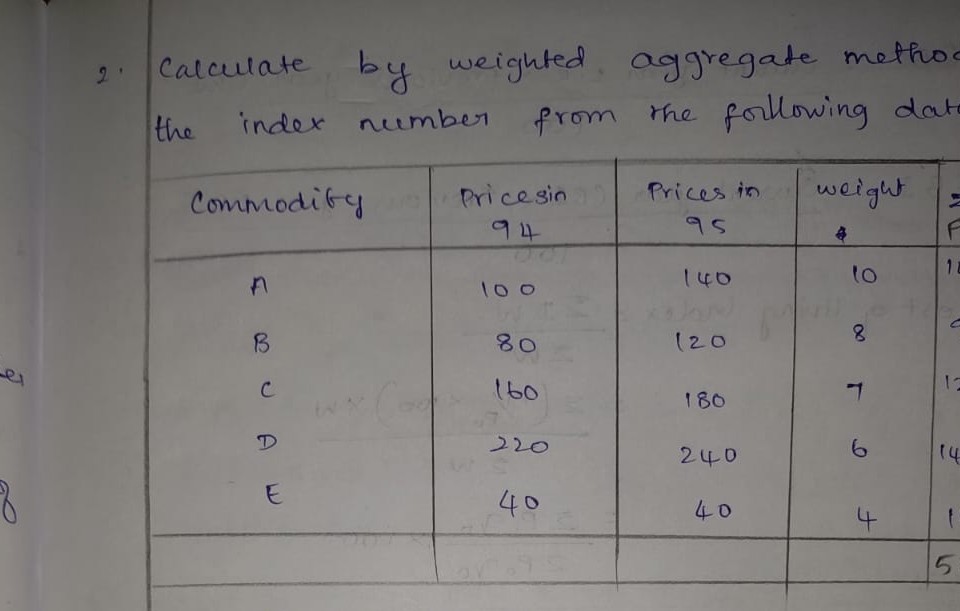 2. Calculate by weighted aggregate
the index number from the following
Commodity Prices in 94 Prices in 95 weight
A 100 140 10
B 80 120 8
C 160 180 7
D 220 240 6
E 40 40 4
5